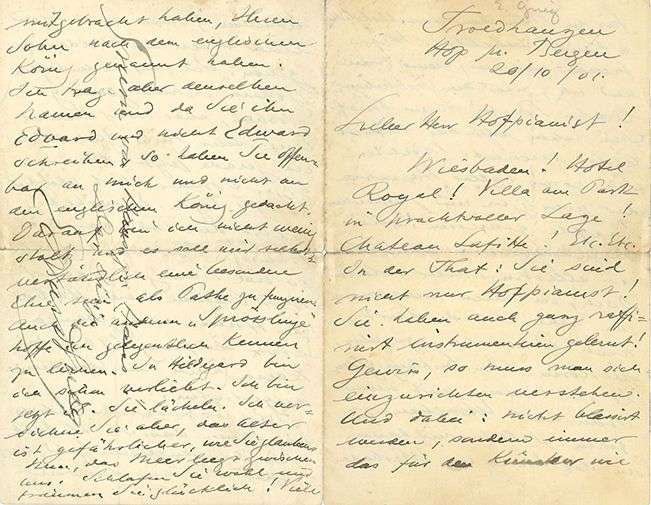 Troldhaugen
Hop pr. Bergen
20/10/01.
Lieber Herr Hofpianist!
Wiesbaden! Hotel
Royal! Villa am Park
in prachtvoller Lage!
Chateau Lafitte! Etc. Etc.
In der That: Sie sind
nicht nur Hofpianist!
Sie haben auch ganz raffi-
nirt instrumentiren gelernt!
Gewiss, so muss man sich
einzurichten verstehen.
Und dabei: nicht blasirt
werden, sondern immer
das für den Künstler wie
mitgebracht haben, Ihren
Sohn nach dem englischen
König genannt haben.
Ich trage aber denselben
Namen und da Sie ihn
Edvard und nicht Edward
schreiben so haben Sie offen-
bar an mich und nicht an
den englischen König gedacht.
Darauf bin ich nicht wenig
stolz und es soll mir selbst-
verständlich eine besondere
Ehre sein als Pathe zu fungiren
Auch die anderen „Sprösslinge
hoffe ich gelegentlich kennen
zu lernen. In Hildgard bin
ich schon verliebt. Ich bin
jetzt Sie lächeln. Ich ver-
sichere Sie aber, das Alter
ist gefährlicher, wie Sie glauben
Nun, das Meer liegt zwischen
uns. Schlafen Sie wohl und
träumen Sie glücklich! Viele